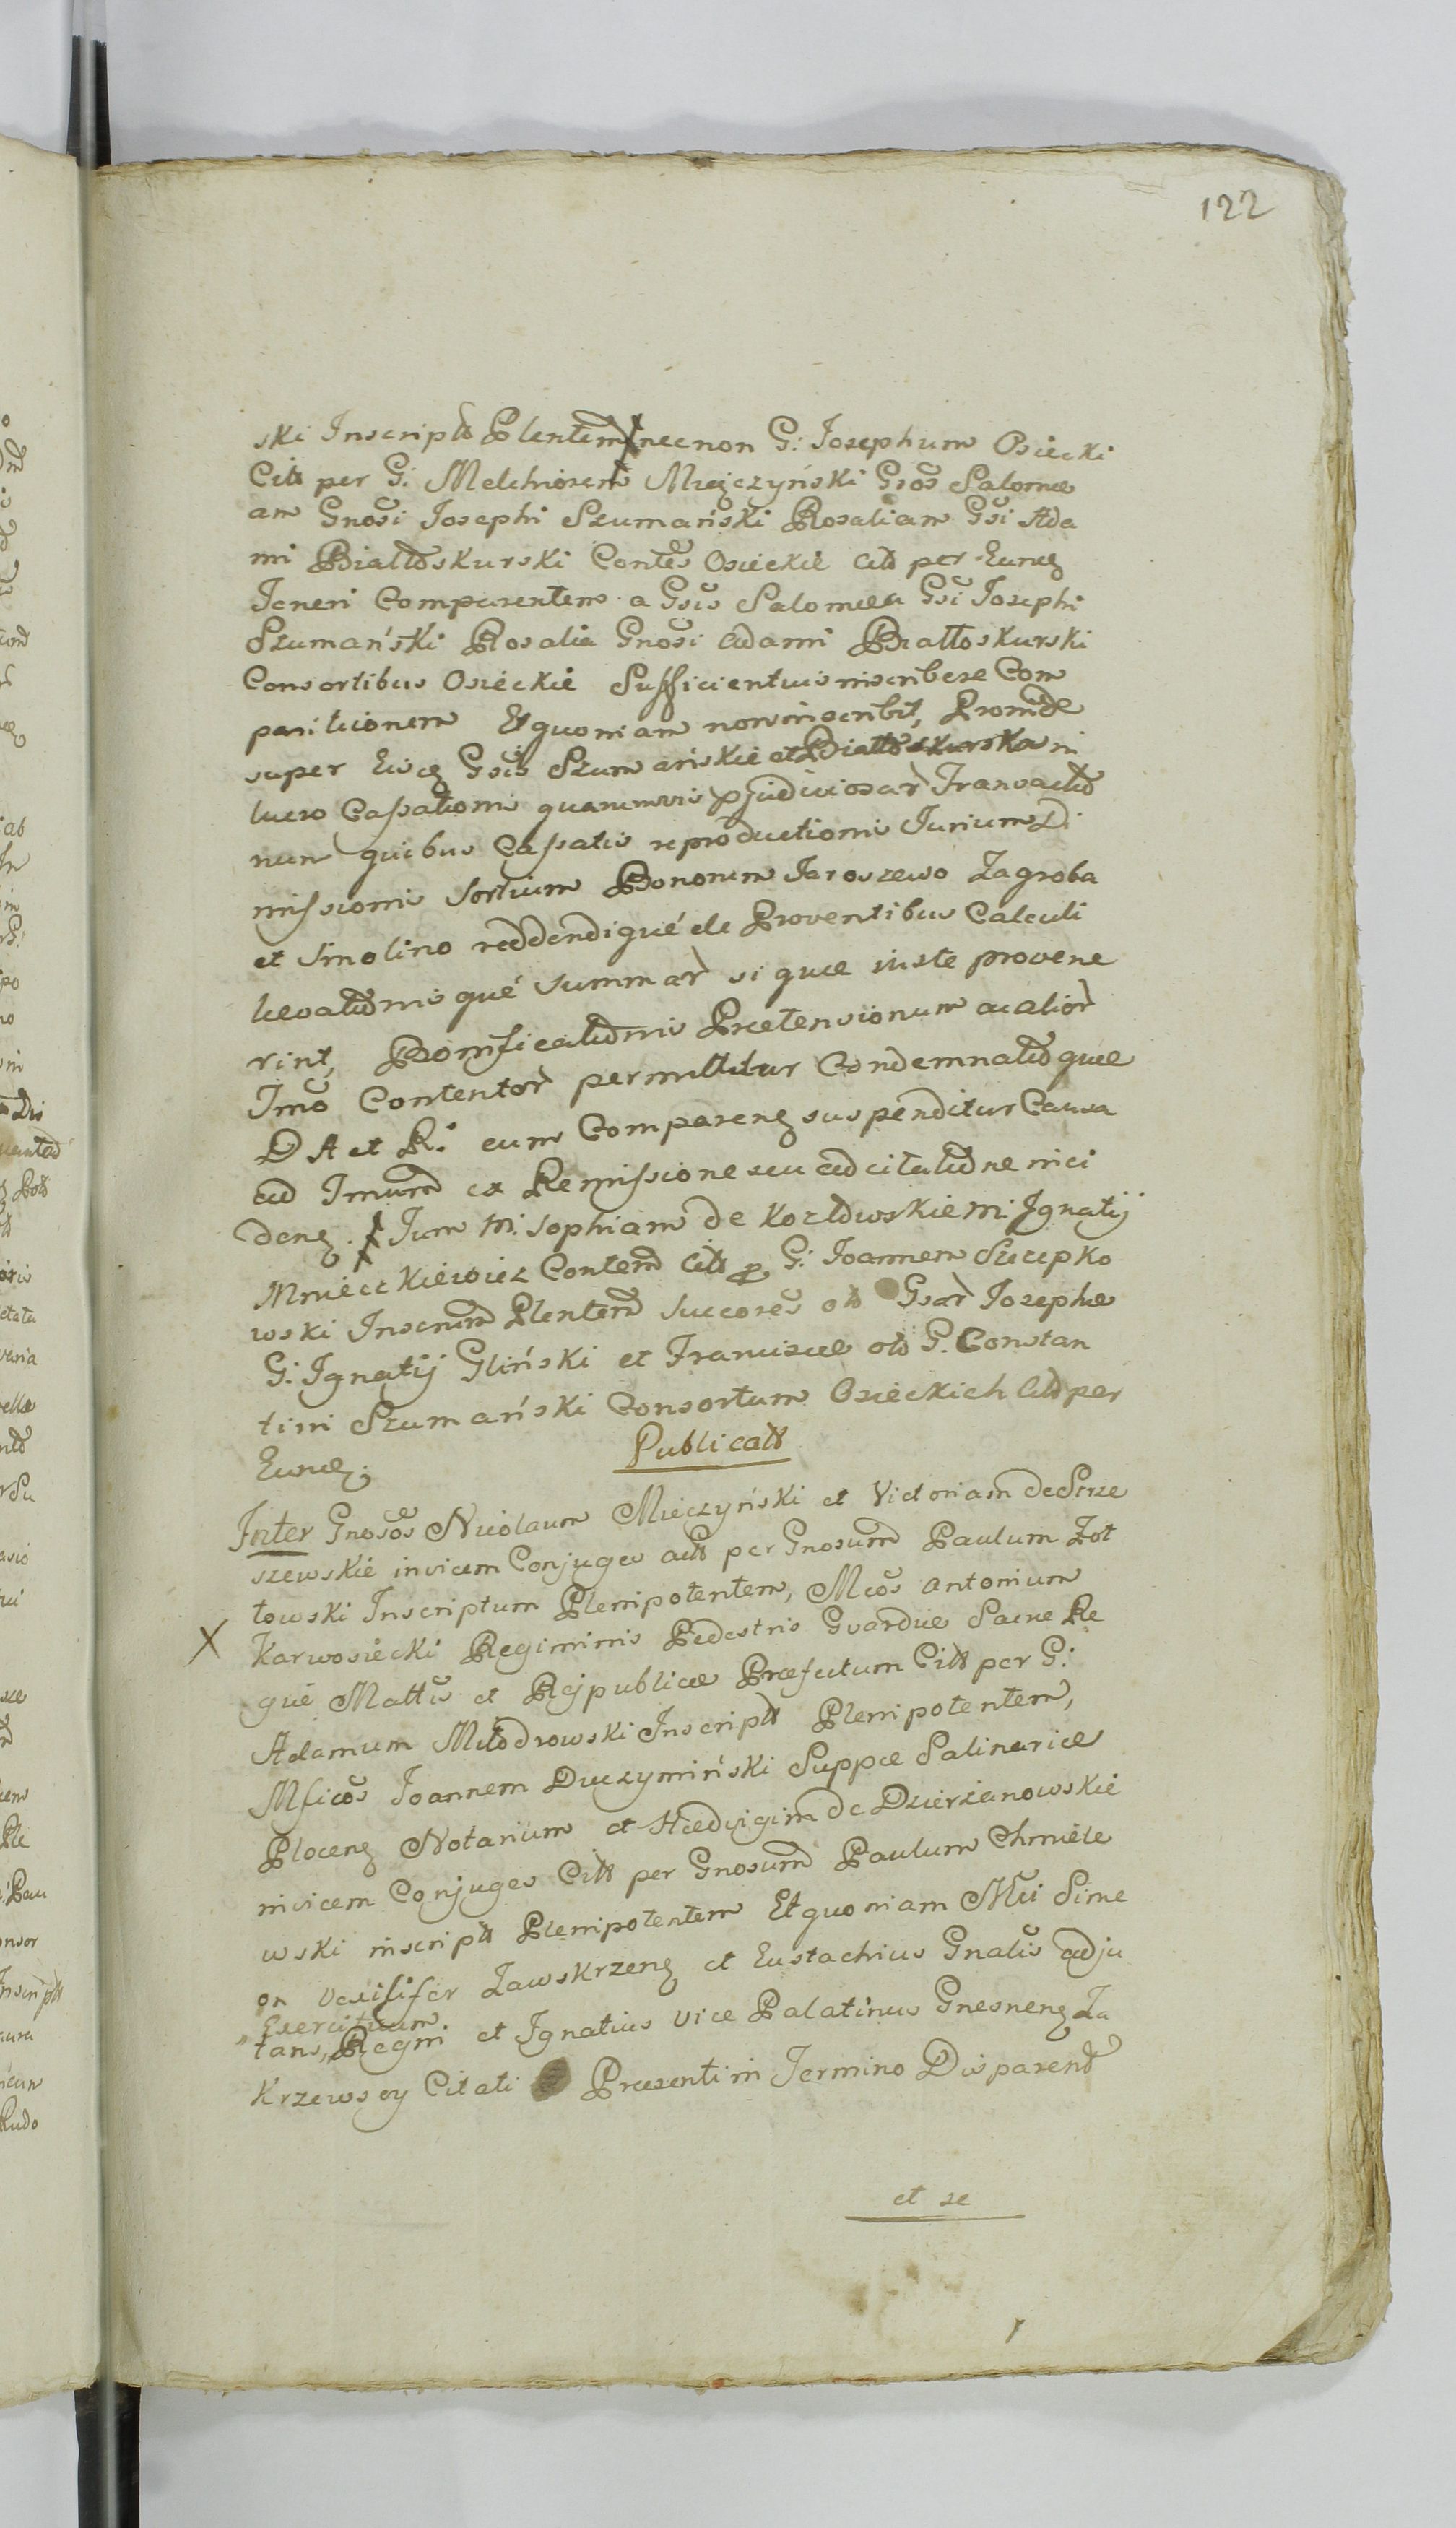 122
ski Inscriptū Plentem necnon G: Josephum Osiecki
Citū per G: Melchiorem Mieczyński Gsos Salome
am Gnosi Josephi Szumański Rosaliam Gsi Ada
mi Białłoskurski Contes Osieckie citū per Eunq
Teneri Comparentem a Gsis Salomea Gsi Josephi
Szumański Rosalia Gnosi Adami Białłoskurski
Consortibus Osieckie Sufficientius inscribere Com
paritionem Et quoniam non inscribit, Proinde
super Eisq Gsis Szumańskie et Białłoskurska in
lucro Cassationis quarumvis pjudiciosar Transactio
num quibus Cassatis reproductionis Jurium Di
missionis Sortium Bonorum Jaroszewo Zagroba
et Smolino reddendi qué de Proventibus Calculi
levationis qué Summar si quae iuste provene
rint, Bonificationis Praetensionum ac alior
Imo Contentor permittitur Condemnatio quae
D A et R: cum Compareng suspenditur Causa
ad Imum ex Remissione seu ad citatione inci
deng. Tum M: Sophiam de Kozłowskie M: Ignatij
Mnieckiewicz Contem Citū p G: Joannem Szczepko
wski Inscrum Plentem Succores olo Gsar Josephae
G: Ignatij Gliński et Franciscae olo G: Constan
tini Szumański Consortum Osieckich Citū per
Eunq.
Publicatū
Inter Gnosos Nicolaum Mieczyński et Victoriam de Strze
szewskie invicem Conjuges actū per Gnosum Paulum Zot
towski Inscriptum Plenipotentem, Mcos Antonium
X Karwosiecki Regiminis Pedestris Gvardiae Sacrae Re
giae Mattis et Rejpublicae Praefectum Citū per G:
Adamum Młodrowski Inscriptū Plenipotentem,
Mficos Joannem Duczymiński Suppae Salinariae
Ploceng Notarium et Haedvigim de Dzierzanowskie
invicem Conjuges Citū per Gnosum Paulum Chmiele
wski inscriptū Plenipotentem Et quoniam Mci Sime
on Vexilifer Zawskrzeng et Eustachius Gnalis adju
Exercituum
tans, Regni et Ignatius Vice Palatinus Gnesneng Za
Krzewscy Citati Praesenti in Termino Disparend
et se